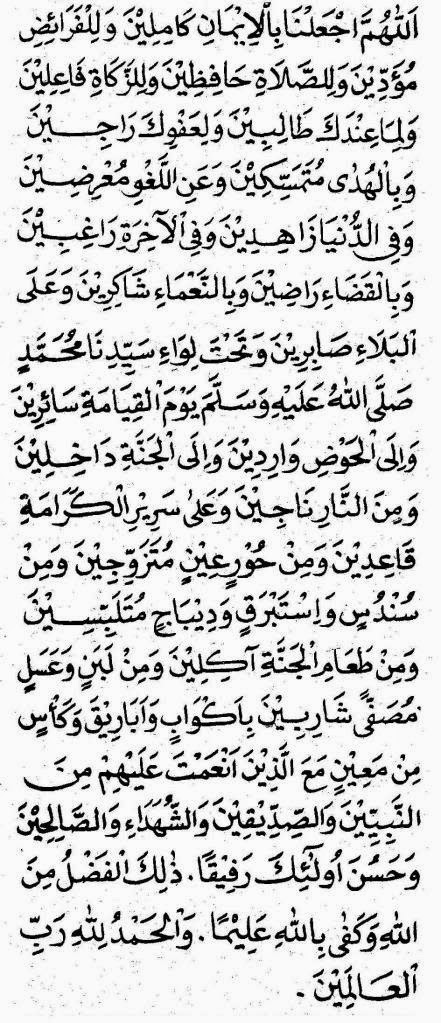 اَللّٰهُمَّ اجْعَلْنَا بِالْاِيْمَانِ كَامِلِيْنَ وَلِلْفَرَائِضِ
مُؤَدِّيْنَ وَلِلصَّلَاةِ حَافِظِيْنَ وَلِلزَّكَاةِ فَاعِلِيْنَ
وَلِمَا عِنْدَكَ طَالِبِيْنَ وَلِعَفْوِكَ رَاجِيْنَ
وَبِالْهُدٰى مُتَمَسِّكِيْنَ وَعَنِ اللَّغْوِ مُعْرِضِيْنَ
وَفِى الدُّنْيَا زَاهِدِيْنَ وَفِى الْآخِرَةِ رَاغِبِيْنَ
وَبِالْقَضَاءِ رَاضِيْنَ وَبِالنَّعْمَاءِ شَاكِرِيْنَ وَعَلَى
الْبَلَاءِ صَابِرِيْنَ وَتَحْتَ لِوَاءِ سَيِّدِنَا مُحَمَّدٍ
صَلَّى اللهُ عَلَيْهِ وَسَلَّمَ يَوْمَ الْقِيَامَةِ سَائِرِيْنَ
وَاِلَى الْحَوْضِ وَارِدِيْنَ وَاِلَى الْجَنَّةِ دَاخِلِيْنَ
وَمِنَ النَّارِ نَاجِيْنَ وَعَلٰى سَرِيْرِ الْكَرَامَةِ
قَاعِدِيْنَ وَمِنْ حُوْرٍ عِيْنٍ مُتَزَوِّجِيْنَ وَمِنْ
سُنْدُسٍ وَاِسْتَبْرَقٍ وَدِيْبَاجٍ مُتَلَبِّسِيْنَ
وَمِنْ طَعَامِ الْجَنَّةِ آكِلِيْنَ وَمِنْ لَبَنٍ وَعَسَلٍ
مُصَفًّى شَارِبِيْنَ بِاَكْوَابٍ وَاَبَارِيْقَ وَكَأْسٍ
مِنْ مَعِيْنٍ مَعَ الَّذِيْنَ اَنْعَمْتَ عَلَيْهِمْ مِنَ
النَّبِيِّيْنَ وَالصِّدِّيْقِيْنَ وَالشُّهَدَاءِ وَالصَّالِحِيْنَ
وَحَسُنَ اُولٰئِكَ رَفِيْقًا. ذٰلِكَ الْفَضْلُ مِنَ
اللهِ وَكَفٰى بِاللهِ عَلِيْمًا. وَالْحَمْدُ لِلهِ رَبِّ
الْعَالَمِيْنَ.